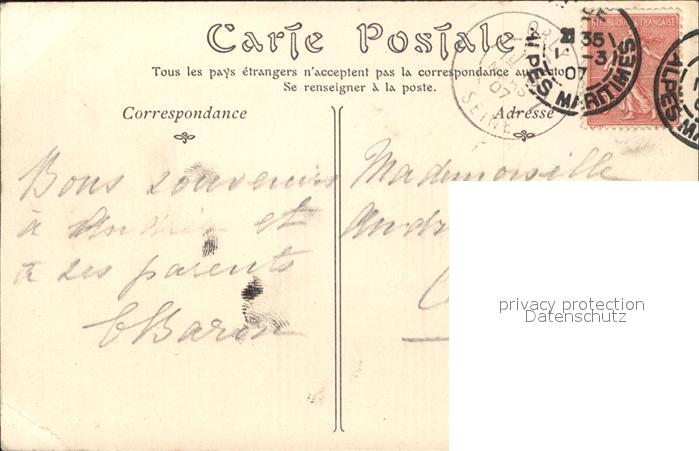 Carte Postale
Tous les pays étrangers n'acceptent pas la correspondance au recto
Se renseigner à la poste.
RÉPUBLIQUE FRANÇAISE
35
-3
07
ALPES MARITIMES
07
SEINE
ALPES
Correspondance
Bons souvenirs
à Andrée et
à ses parents
E Baron
Adresse
Mademoiselle
privacy protection
Datenschutz